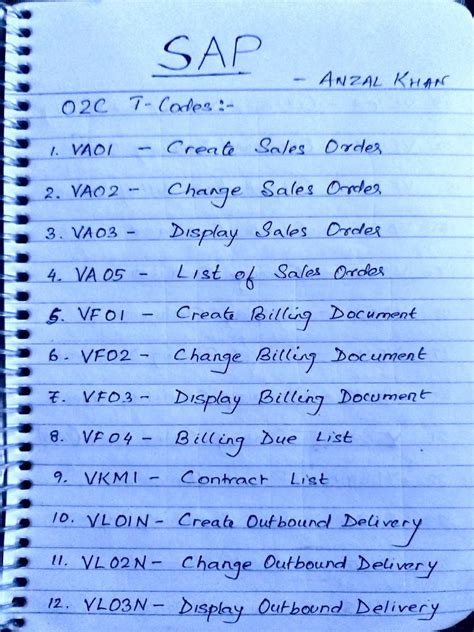 SAP
- ANZAL KHAN
O2C T-Codes:-
1. VA01 - Create Sales Order
2. VA02 - Change Sales Order
3. VA03 - Display Sales Order
4. VA05 - List of Sales Order
5. VF01 - Create Billing Document
6. VF02 - Change Billing Document
7. VF03 - Display Billing Document
8. VF04 - Billing Due List
9. VKM1 - Contract List
10. VL01N - Create Outbound Delivery
11. VL02N - Change Outbound Delivery
12. VL03N - Display Outbound Delivery